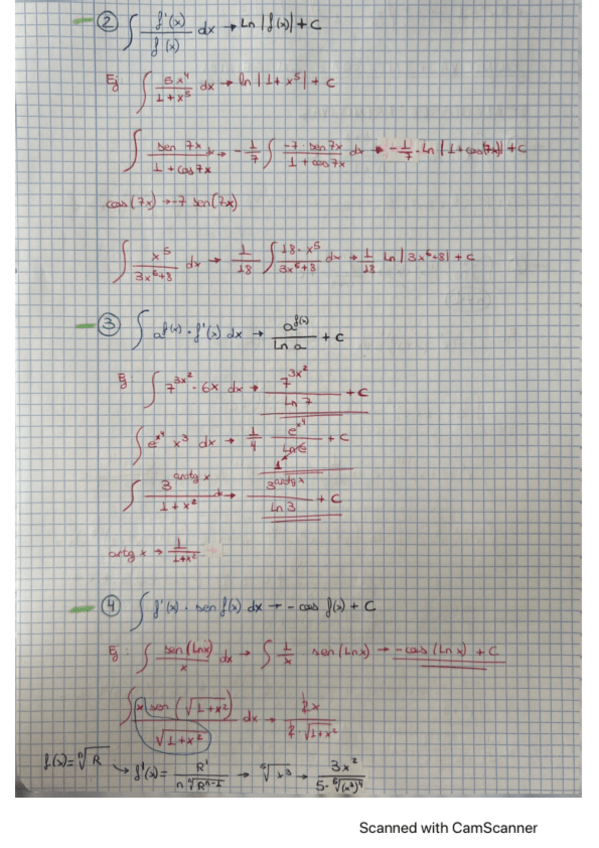 ② ∫ f'(x)/f(x) dx → Ln |f(x)| + C
Ej: ∫ 5x⁴/(1+x⁵) dx → ln |1+x⁵| + C
∫ sen 7x/(1+cos 7x) dx → -1/7 ∫ -7·sen 7x/(1+cos 7x) dx → -1/7 · Ln |1+cos(7x)| + C
cos(7x) → -7 sen(7x)
∫ x⁵/(3x⁶+8) dx → 1/18 ∫ 18·x⁵/(3x⁶+8) dx → 1/18 Ln |3x⁶+8| + C
③ ∫ a^f(x) · f'(x) dx → a^f(x)/Ln a + C
Ej: ∫ 7^3x² · 6x dx → 7^3x²/Ln 7 + C
∫ e^x⁴ x³ dx → 1/4 e^x⁴/Ln e + C
1
∫ 3^arctg x/(1+x²) dx → 3^arctg x/Ln 3 + C
arctg x → 1/(1+x²)
④ ∫ f'(x) · sen f(x) dx → - cos f(x) + C
Ej: ∫ sen(Lnx)/x dx → ∫ 1/x sen(Lnx) → -cos(Lnx) + C
∫ x sen(√(1+x²))/√(1+x²) dx → 2x/(2·√(1+x²))
f(x) = ⁿ√R → f'(x) = R'/(n ⁿ√Rⁿ⁻¹) → ⁵√x³ → 3x²/(5·⁵√(x³)⁴)
Scanned with CamScanner